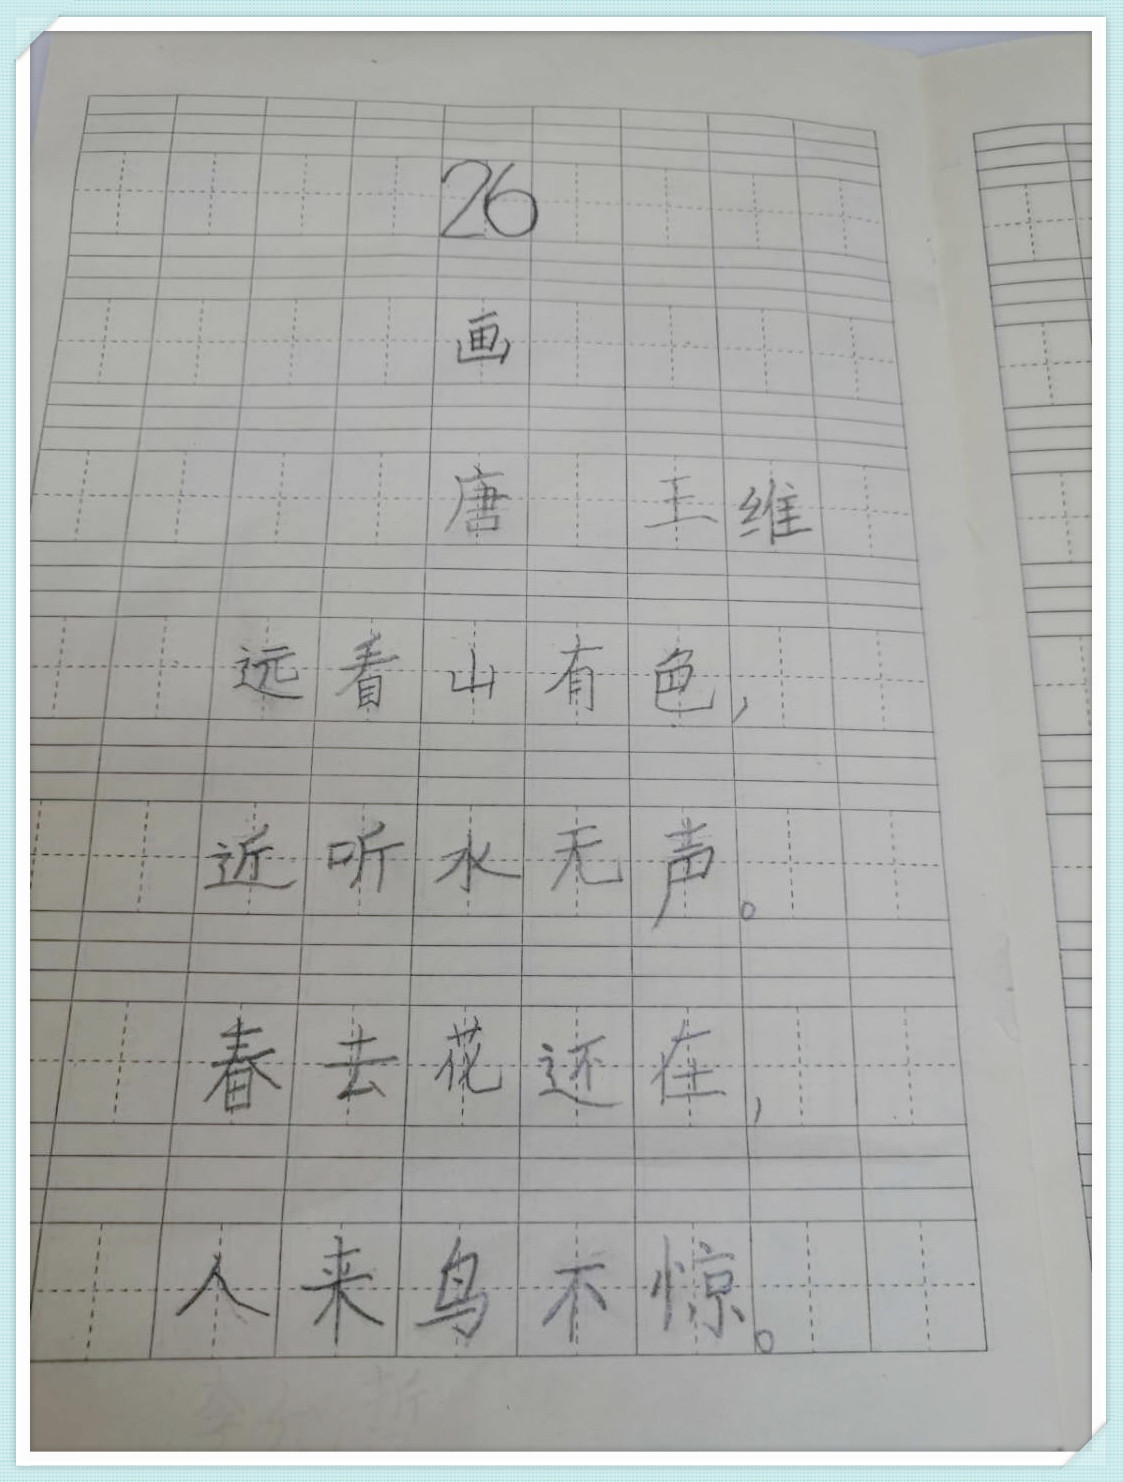 26
画
唐 王维
远看山有色,
近听水无声。
春去花还在,
人来鸟不惊。